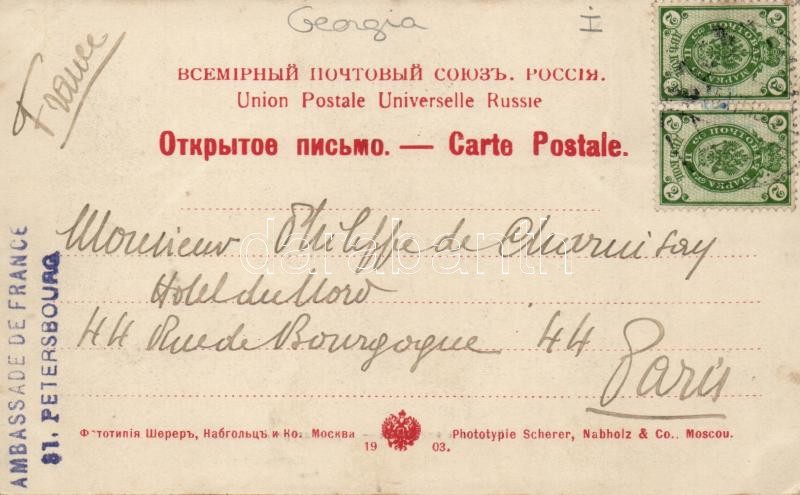 Georgia I
France
ВСЕМІРНЫЙ ПОЧТОВЫЙ СОЮЗЪ. РОССІЯ.
Union Postale Universelle Russie
Открытое письмо. — Carte Postale.
Monsieur Philippe de Charnisay
Hotel du Nord
44 Rue de Bourgogne 44
Paris
AMBASSADE DE FRANCE
St. PETERSBOURG
Фототипія Шереръ, Набгольцъ и Ко. Москва
Phototypie Scherer, Nabholz & Co. Moscou.
19 03.
darabanth